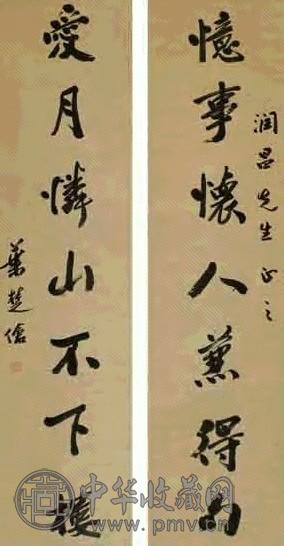 憶事懷人兼得句
润昌先生正之
愛月憐山不下樓
葉楚傖
中华收藏网
www.pmv.cn